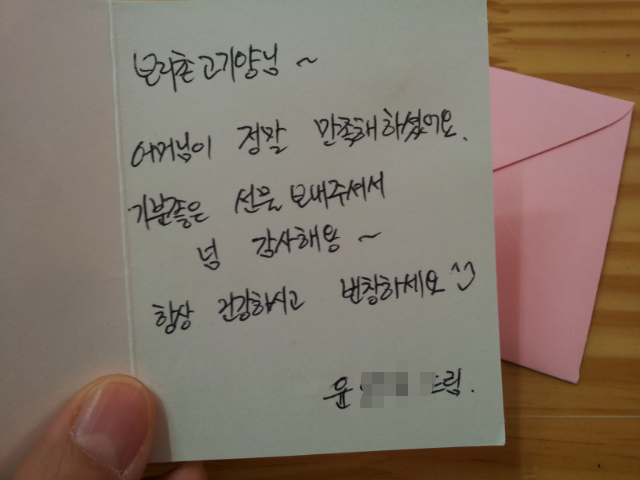 보리촌고기양님 ~
어머님이 정말 만족해하셨어요.
기분좋은 선물 보내주셔서
넘 감사해용 ~
항상 건강하시고 번창하세요^^
윤 드림.